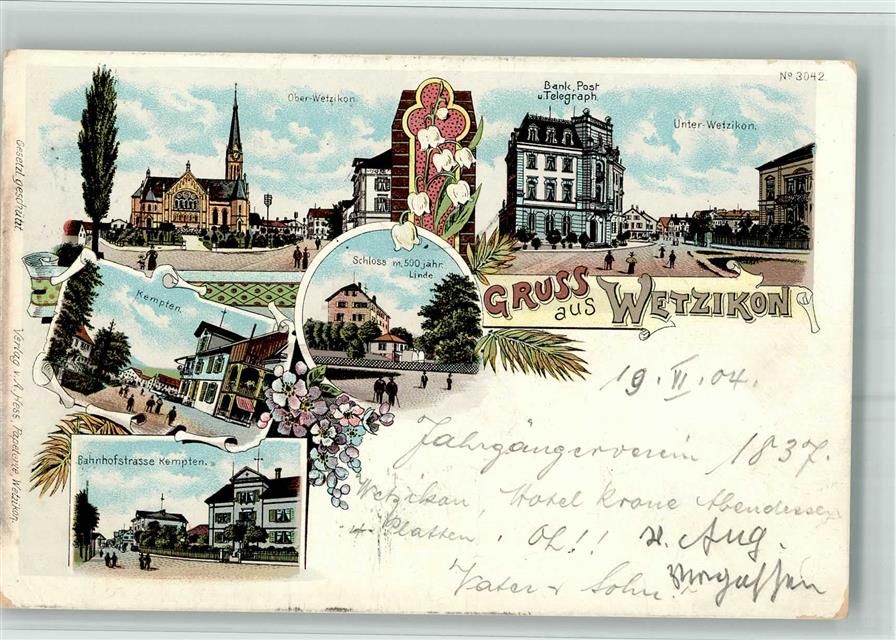 No 3042
Gesetzl. geschützt
Ober-Wetzikon
Bank, Post
u. Telegraph.
Unter-Wetzikon.
Schloss m. 500 jähr.
Linde
Kempten.
GRUSS aus WETZIKON
Bahnhofstrasse Kempten.
Verlag v. A. Hess, Papeterie Wetzikon.
19. VI. 04.
Jahrgängerverein 1837.
Wetzikon, Hotel Krone Abendessen
Platten, Oh!! Aug.
Vater + Sohn.